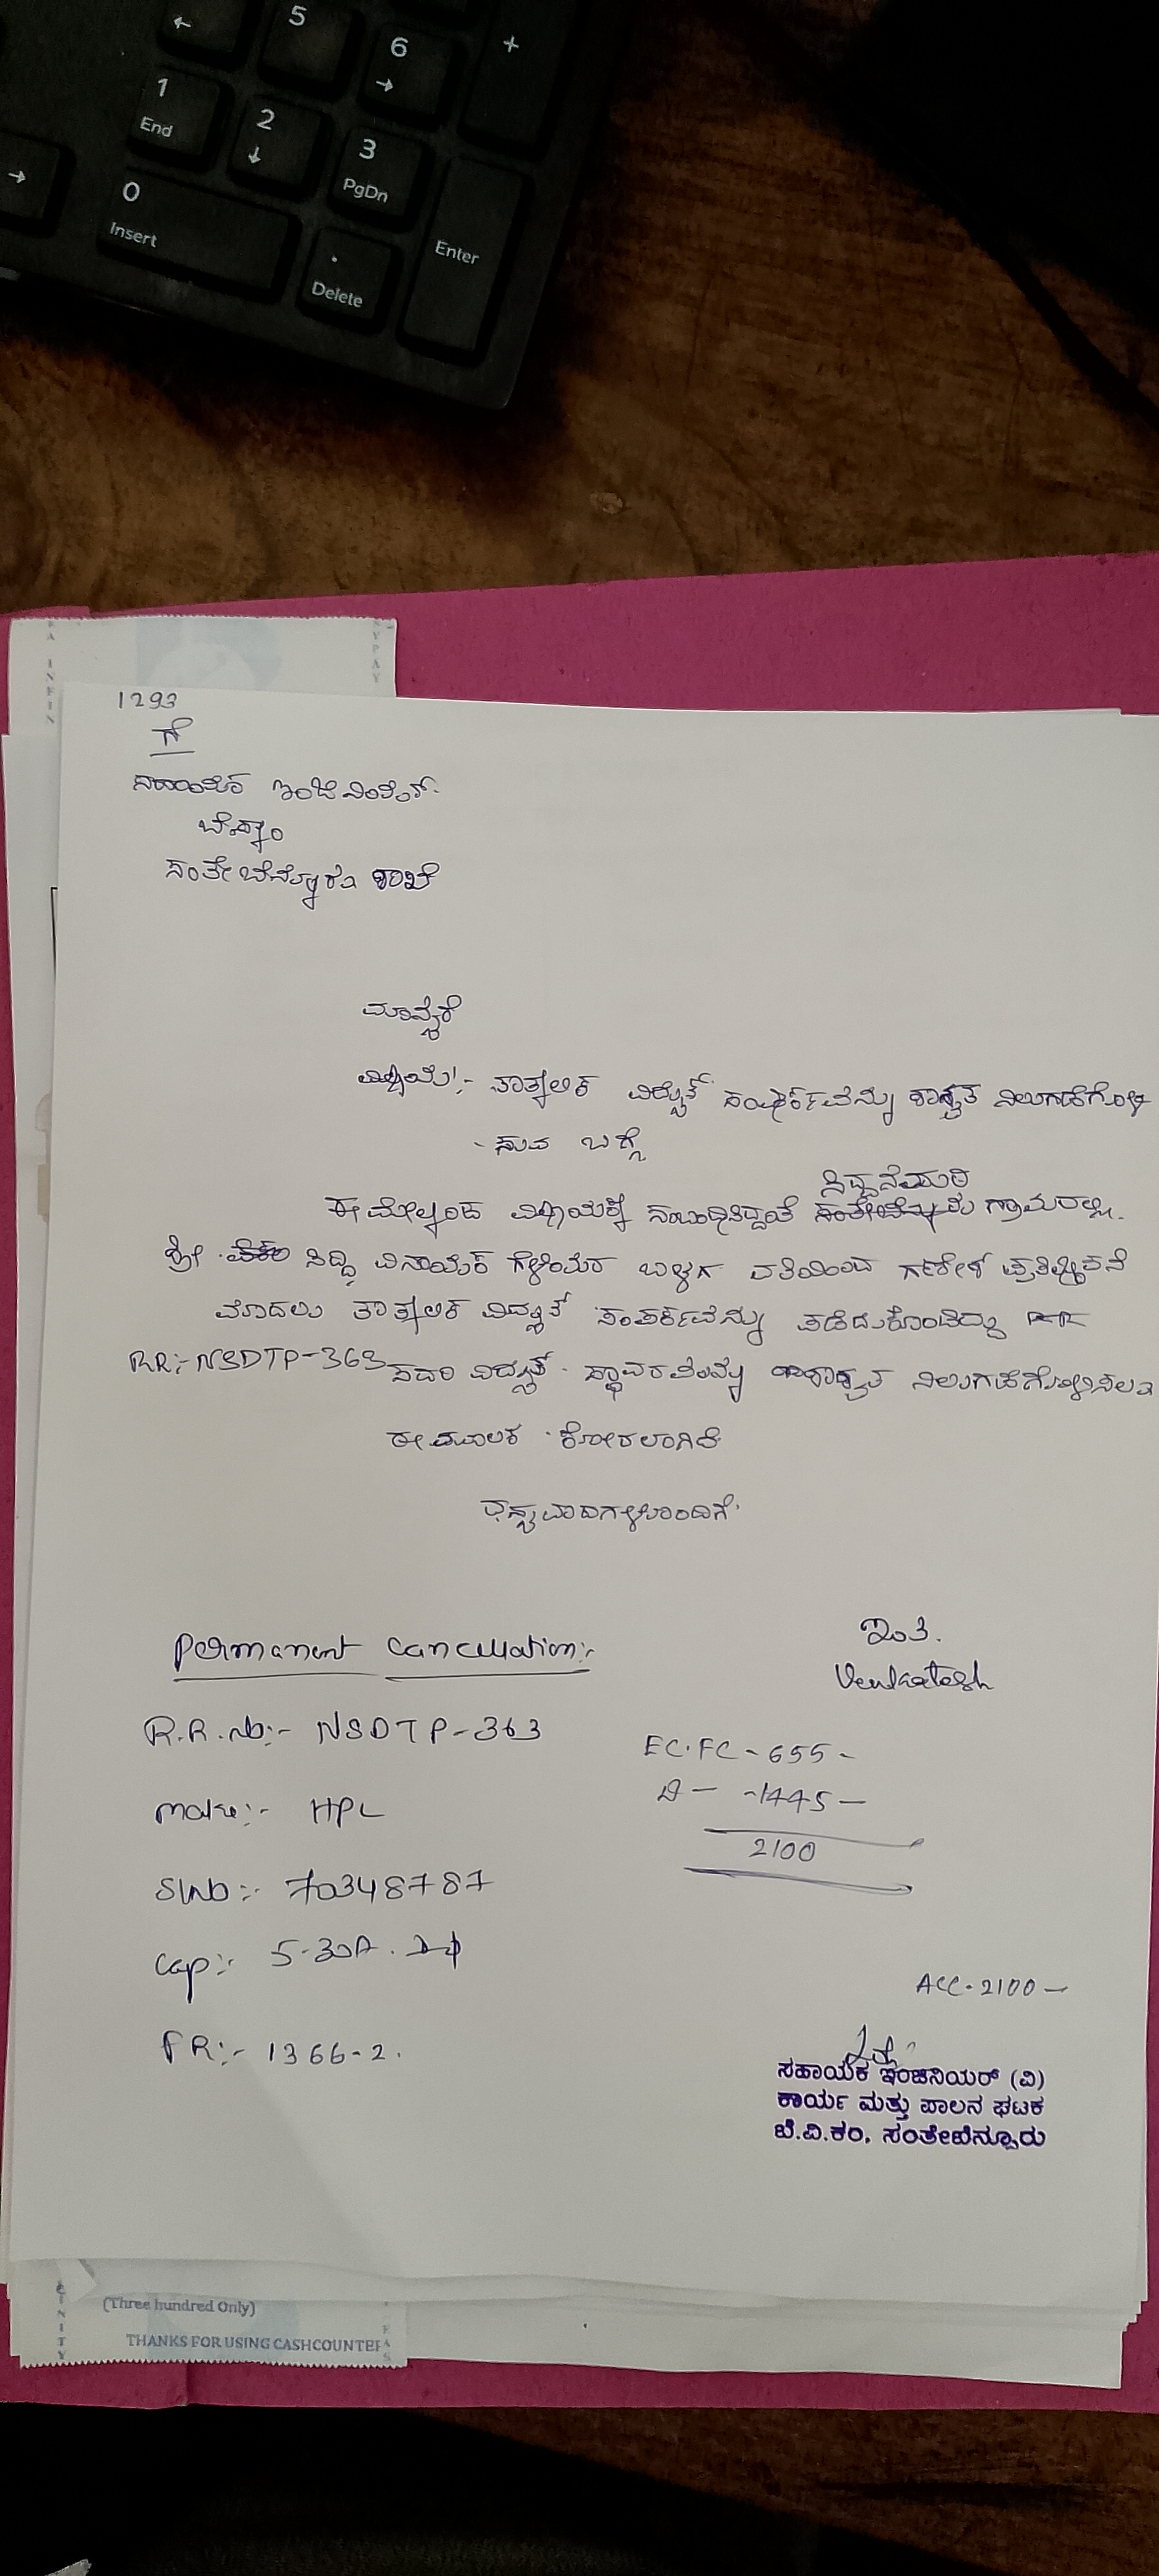 5
6
+
1
End
2
3
PgDn
0
Insert
.
Delete
Enter
1293
ಗೆ
ಸಹಾಯಕ ಇಂಜಿನಿಯರ್
ಬೆವಿಕಂ
ಸಂತೇಬೆನ್ನೂರು ಶಾಖೆ
ಮಾನ್ಯರೆ
ವಿಷಯ:- ತಾತ್ಕಾಲಿಕ ವಿದ್ಯುತ್ ಸಂಪರ್ಕವನ್ನು ಶಾಶ್ವತ ನಿಲುಗಡೆಗೊಳಿ
- ಸುವ ಬಗ್ಗೆ
ಸಿದ್ದನಮಠ
ಈ ಮೇಲ್ಕಂಡ ವಿಷಯಕ್ಕೆ ಸಂಬಂಧಿಸಿದ್ದಂತೆ ಗ್ರಾಮದಲ್ಲಿ.
ಶ್ರೀ ಸಿದ್ಧಿ ವಿನಾಯಕ ಗೆಳೆಯರ ಬಳಗ ವತಿಯಿಂದ ಗಣೇಶ ಪ್ರತಿಷ್ಠಾಪನೆ
ಮೊದಲು ತಾತ್ಕಾಲಿಕ ವಿದ್ಯುತ್ ಸಂಪರ್ಕವನ್ನು ಪಡೆದುಕೊಂಡಿದ್ದು
RR:- NSDTP-363 ಸದರಿ ವಿದ್ಯುತ್ ಸ್ಥಾವರವನ್ನು ಶಾಶ್ವತ ನಿಲುಗಡೆಗೊಳ್ಳಿಸಲು
ಈ ಮೂಲಕ ಕೋರಲಾಗಿದೆ
ಧನ್ಯವಾದಗಳೊಂದಿಗೆ
Permanent Cancellation:-
ಇಂತಿ.
Venkatesh
R.R.No:- NSDTP-363
EC.FC - 655 -
D - -1445 -
Make:- HPL
2100
SLNo:- 70348787
Cap:- 5-30A.
ACC-2100 -
FR:- 1366-2.
ಸಹಾಯಕ ಇಂಜಿನಿಯರ್ (ವಿ)
ಕಾರ್ಯ ಮತ್ತು ಪಾಲನ ಘಟಕ
ಬೆ.ವಿ.ಕಂ. ಸಂತೇಬೆನ್ನೂರು
(Three hundred Only)
THANKS FOR USING CASHCOUNTER